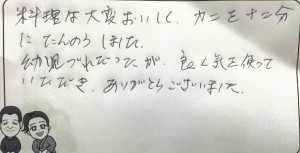 料理は大変おいしく、カニを十二分
にたんのうしました。
幼児づれだったが、良く気を使って
いただき、ありがとうございました。